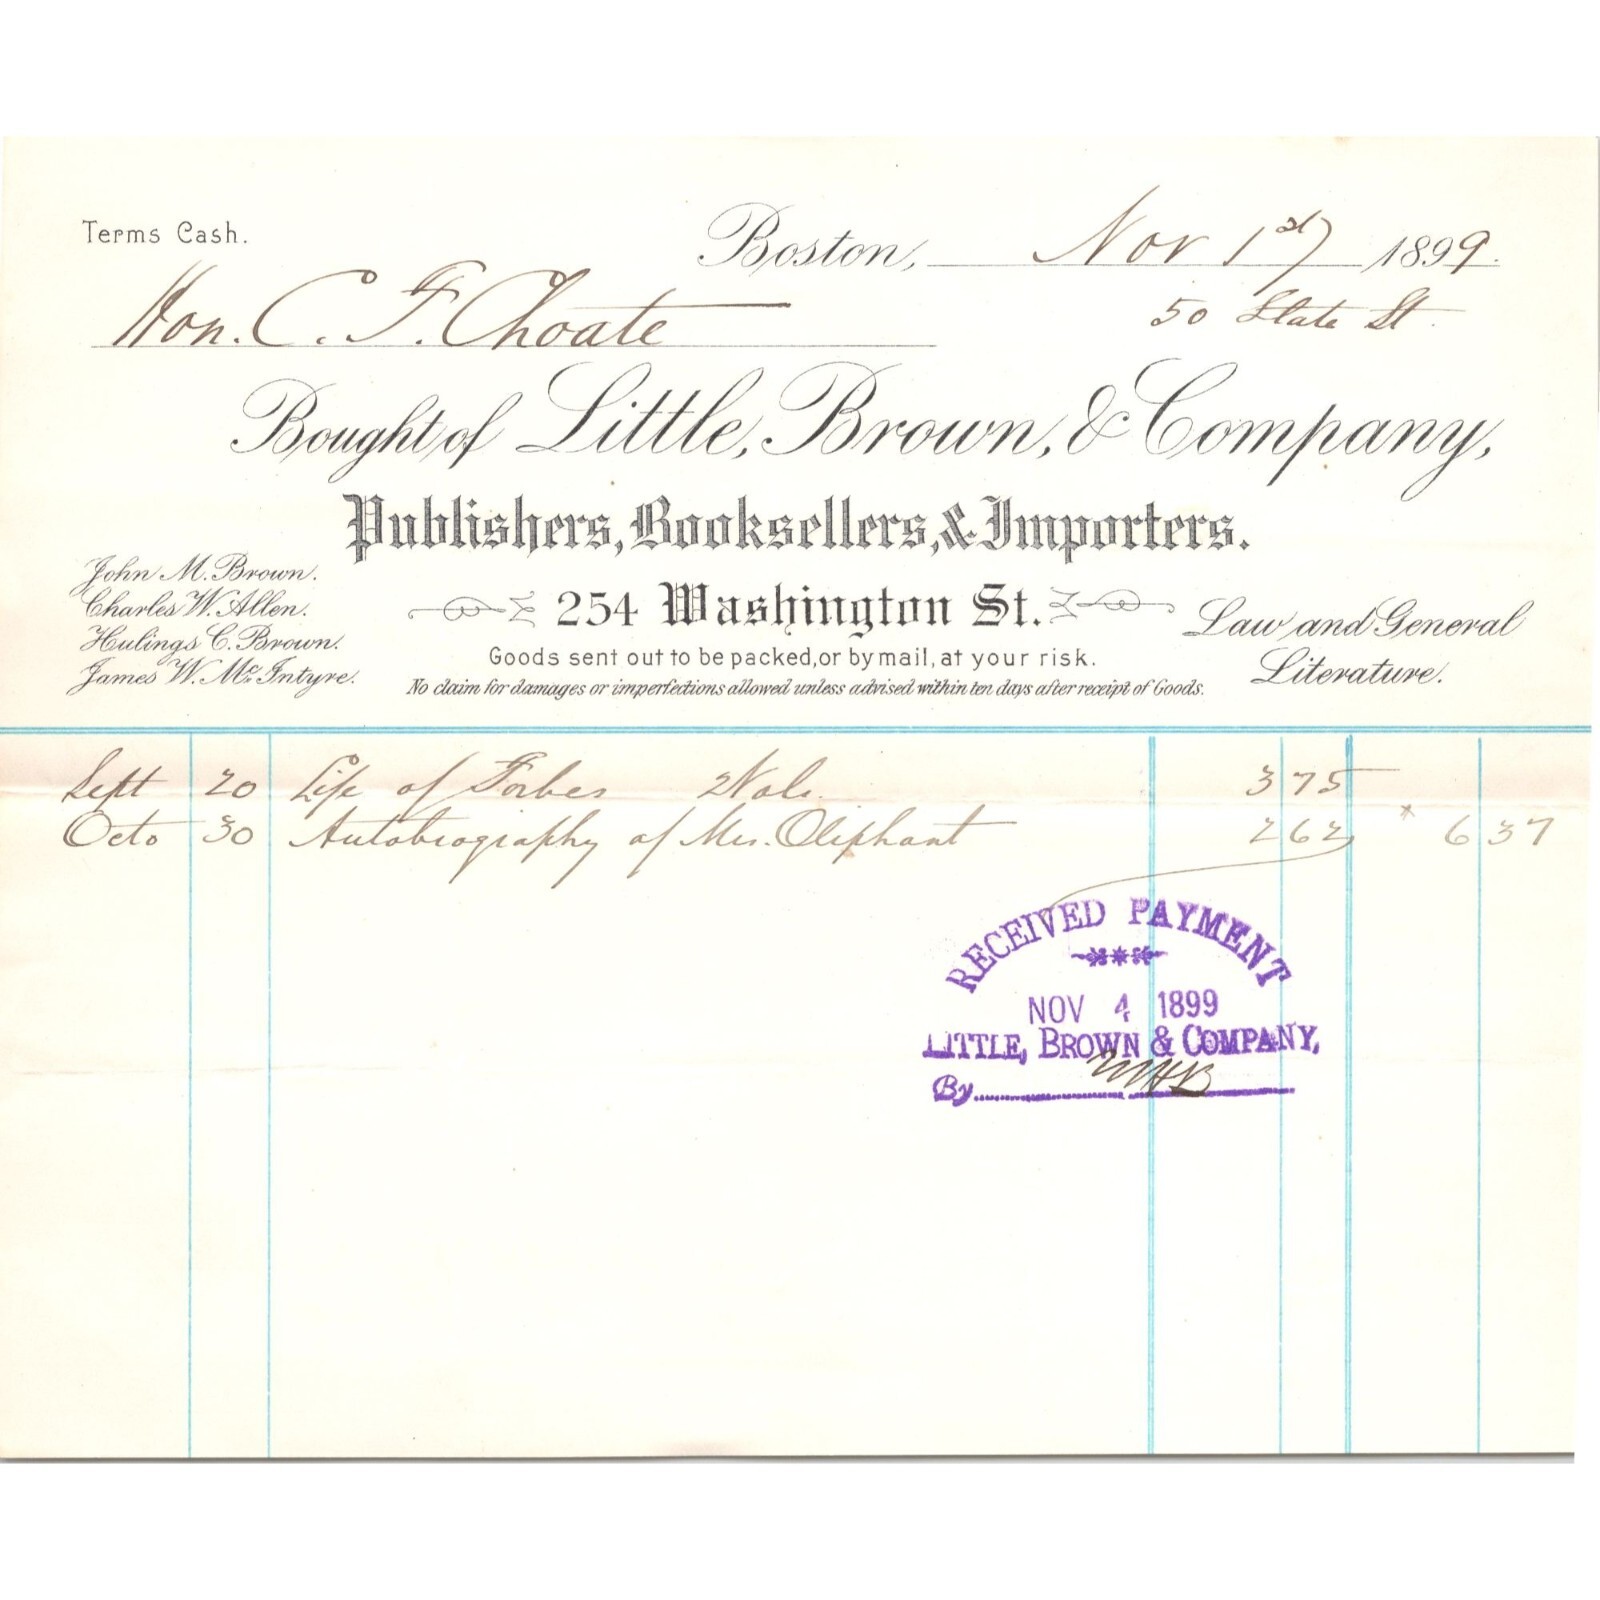 Terms Cash.
Boston, Nov 1st 1899.
Hon. C. F. Choate
50 State St.
Bought of Little, Brown, & Company,
Publishers, Booksellers, & Importers.
John M. Brown.
Charles W. Allen.
Hulings C. Brown.
James W. McIntyre.
254 Washington St.
Law and General
Literature.
Goods sent out to be packed, or by mail, at your risk.
No claim for damages or imperfections allowed unless advised within ten days after receipt of Goods.
Sept 20 Life of Forbes 2 Vols. 3 75
Octo 30 Autobiography of Mrs. Oliphant 2 62 * 6 37
RECEIVED PAYMENT
NOV 4 1899
LITTLE, BROWN & COMPANY,
By